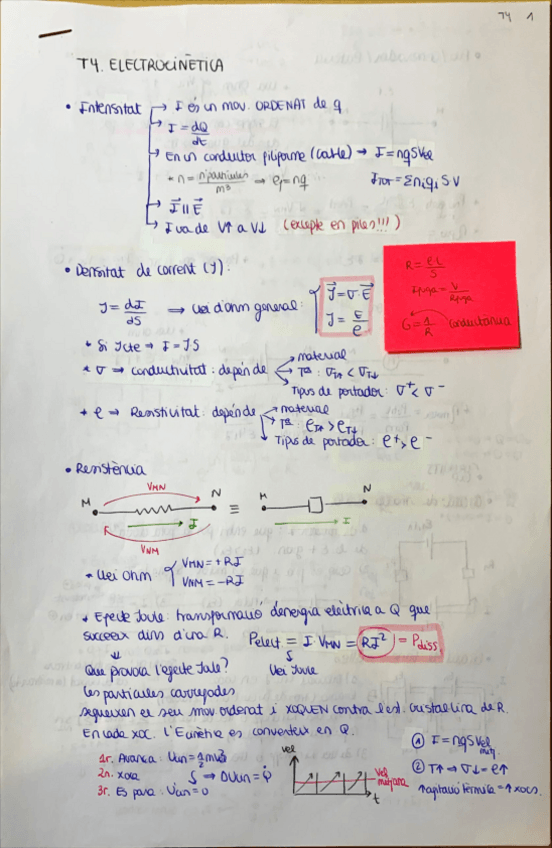 T4 1
T4. ELECTROCINÈTICA
• Intensitat → I és un mov. ORDENAT de q
→ I = dQ/dt
→ En un conductor filiforme (cable) → I = nqSVel
* n = nºpartícules/m³ ⟹ ρ = nq    ITOT = Σniqi S V
→ I⃗ || E⃗
→ I va de V↑ a V↓ (excepte en piles!!!)
R = ρL/S
Ifuga = V/Rfuga
G = 1/R conductància
• Densitat de corrent (J):
J = dI/dS ⟹ Llei d'ohm general: { J⃗ = σ·E⃗
J = E/ρ
* Si J cte ⟹ I = JS
* σ ⟹ conductivitat: depèn de → material
→ Tª: σT↑ < σT↓
→ Tipus de portador: σ⁺ < σ⁻
* ρ ⟹ Resistivitat: depèn de → material
→ Tª: ρT↑ > ρT↓
→ Tipus de portador: ρ⁺ > ρ⁻
• Resistència
M VMN N ≡ M N
I I
VNM
* Llei ohm { VMN = +RI
VNM = -RI
* Efecte Joule: transformació d'energia elèctrica a Q que
succeeix dins d'una R. Pelect = I·VMN = RI² = Pdiss
Llei Joule
Que provoca l'efecte Joule?
Les partícules carregades
segueixen el seu mov ordenat i XOQUEN contra l'est. cristal·lina de R.
En cada xoc. l'Ecinètica es converteix en Q.
1r. Avança: Ucin = 1/2 mv²
2n. xoca ⟹ ΔUcin = Q
3r. Es para: Ucin = 0
vel
vel mitjana
t
① I = nqSVel mitj.
② T↑ ⟹ σ↓ = ρ↑
↑agitació tèrmica = ↑xocs.